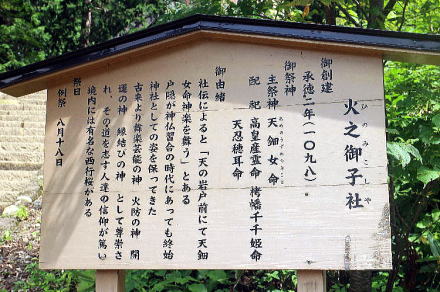 火之御子社
ひのみこしや
御創建
承徳二年(一〇九八)
御祭神
主祭神 天鈿女命
あめのうずめのみこと
配祀 高皇産霊命 栲幡千千姫命
天忍穂耳命
御由緒
社伝によると「天の岩戸前にて天鈿
女命神楽を舞う」とある
戸隠が神仏習合の時代にあっても終始
神社としての姿を保ってきた
古来より舞楽芸能の神 火防の神 開
運の神 縁結びの神 として尊崇さ
れ、その道を志す人達の信仰が篤い
境内には有名な西行桜がある
祭日
例祭 八月十八日